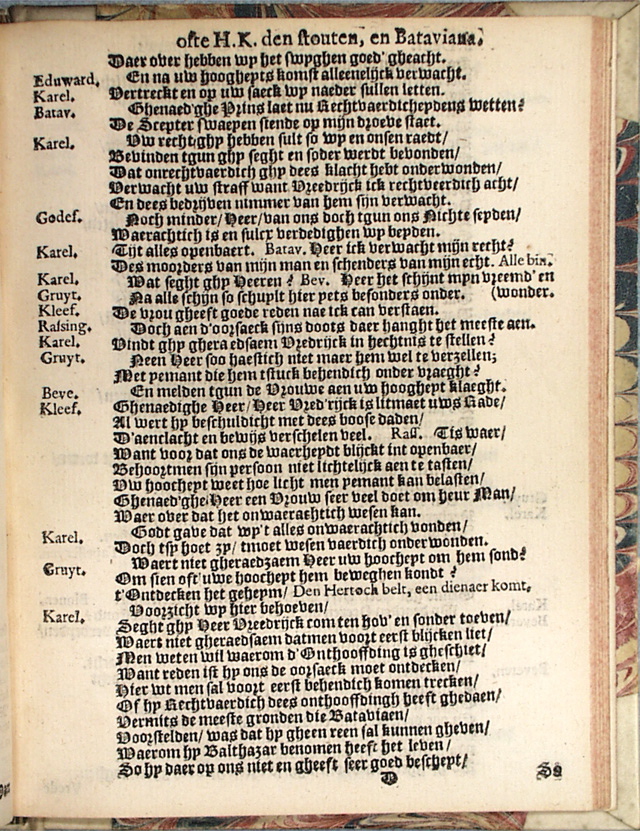 ofte H.K. den stouten, en Bataviana.
Daer over hebben wy het swyghen goed' gheacht.
Eduward. En na uw hooghеyts komst alleenelijck verwacht.
Karel. Vertreckt en op uw saeck wy naeder sullen letten.
Batav. Ghenaed'ghe Prins laet nu Rechtvaerdicheydens wetten?
De Scepter swaeyen stende op mijn droeve staet.
Karel. Uw recht ghy hebben sult so wy en onsen raedt/
Bevinden tgun ghy seght en soder werdt bevonden/
Dat onrechtvaerdich ghy dees klacht hebt onderwonden/
Verwacht uw straff want Vreedrijck ick rechtveerdich acht/
En dees bedrijven nimmer van hem sijn verwacht.
Godef. Noch minder/ Heer/ van ons doch tgun ons Nichte seyden/
Waerachtich is en sulcx verdedighen wy beyden.
Karel. Tijt alles openbaert. Batav. Heer ick verwacht mijn recht?
Des moorders van mijn man en schenders van mijn echt. Alle bin.
Karel. Wat seght ghy Heeren? Bev. Heer het schijnt myn vreemd' en
Gruyt. Na alle schijn so schuylt hier yets besonders onder. (wonder.
Kleef. De vrou gheeft goede reden nae ick can verstaen.
Rassing. Doch aen d'oorsaeck sijns doots daer hanght het meeste aen.
Karel. Vindt ghy gheraedsaem Vredrijck in hechtnis te stellen?
Gruyt. Neen Heer soo haestich niet maer hem wel te verzellen;
Met yemant die hem tstuck behendich onder vraeght?
Beve. En melden tgun de Vrouwe aen uw hoogheyt klaeght.
Kleef. Ghenaedighe Heer/ Heer Vred'rijck is litmaet uws Rade/
Al wert hy beschuldicht met dees boose daden/
D'aenclacht en bewijs verschelen veel. Rass. Tis waer/
Want voor dat ons de waerheydt blijckt int openbaer/
Behoortmen sijn persoon niet lichtelijck aen te tasten/
Uw hoocheyt weet hoe licht men yemant kan belasten/
Ghenaed'ghe Heer een Vrouw seer veel doet om heur Man/
Waer over dat het onwaerachtich wesen kan.
Karel. Godt gave dat wy't alles onwaerachtich vonden/
Doch tsy hoet zy/ tmoet wesen vaerdich onderwonden.
Gruyt. Waert niet gheraedzaem Heer uw hoocheyt om hem sond?
Om sien oft uwe hoocheyt hem beweghen kondt?
t'Ontdecken het geheym/ Den Hertock belt, een dienaer komt.
Karel. Voorzicht wy hier behoeven/
Seght ghy Heer Vreedrijck com ten hov' en sonder toeven/
Waert niet gheraedsaem datmen voort eerst blijcken liet/
Men weten wil waerom d'Onthooffding is gheschiet/
Want reden ist hy ons de oorsaeck moet ontdecken/
Hier wt men sal voort eerst behendich komen trecken/
Of hy Rechtvaerdich dees onthooffdingh heeft ghedaen/
Vermits de meeste gronden die Bataviaen/
Voorstelden/ was dat hy gheen reen sal kunnen gheven/
Waerom hy Balthazar benomen heeft het leven/
So hy daer op ons niet en gheeft seer goed bescheyt/
D So